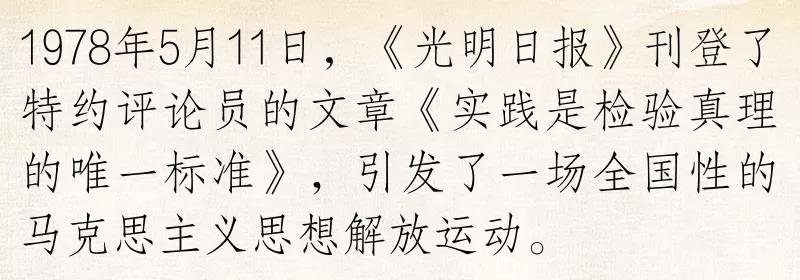 1978年5月11日，《光明日报》刊登了
特约评论员的文章《实践是检验真理
的唯一标准》，引发了一场全国性的
马克思主义思想解放运动。